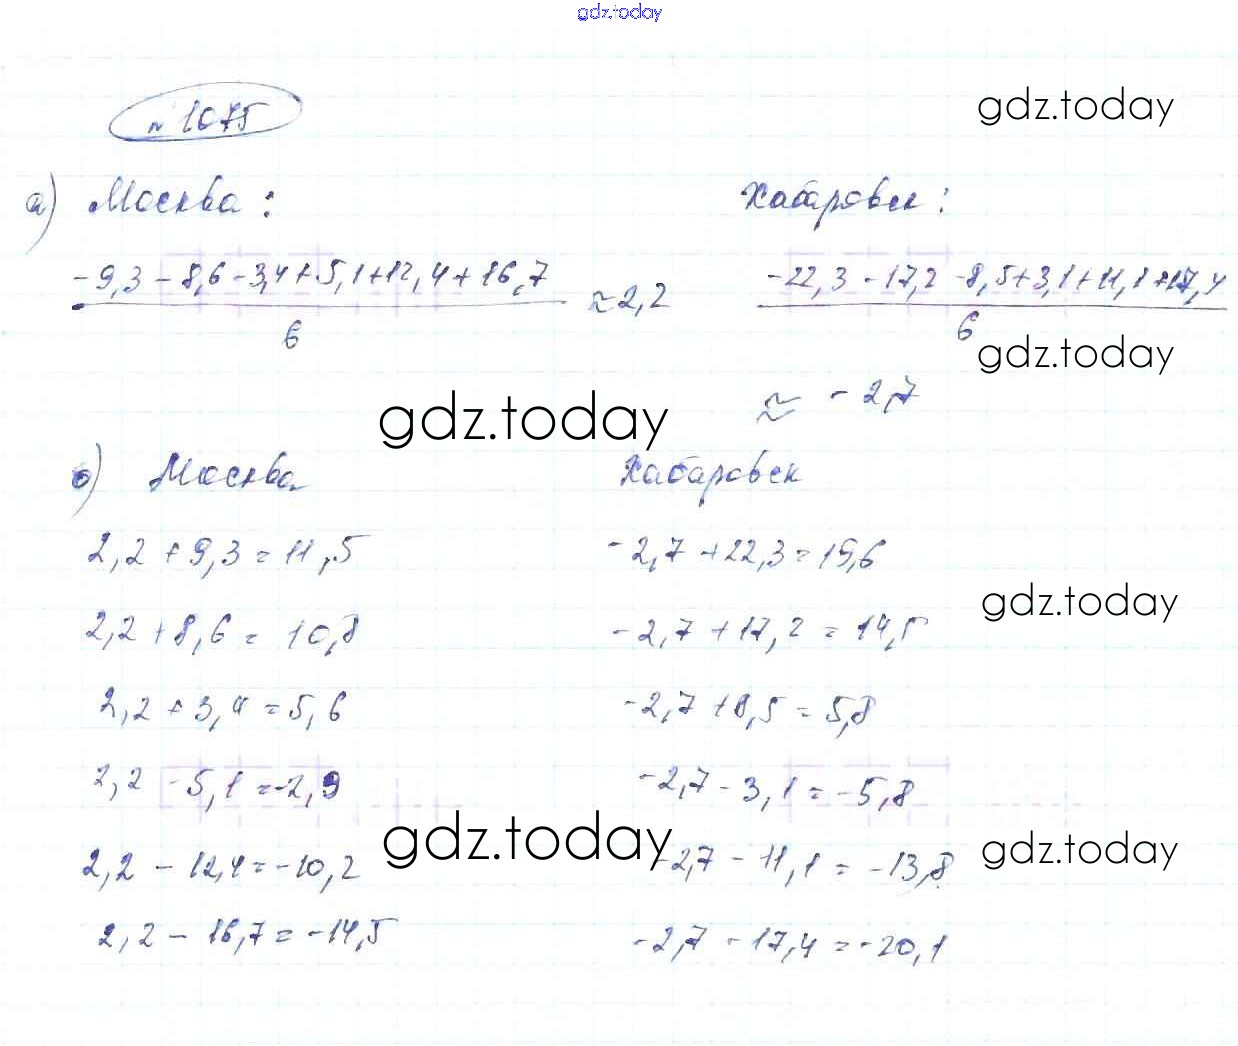 gdz.today
№ 1075
gdz.today
а) Москва: Хабаровск:
-9,3 - 8,6 - 3,4 + 5,1 + 12,4 + 16,7 / 6 ≈ 2,2
-22,3 - 17,2 - 8,5 + 3,1 + 11,1 + 17,4 / 6
gdz.today
≈ -2,7
gdz.today
б) Москва Хабаровск
2,2 + 9,3 = 11,5 -2,7 + 22,3 = 19,6
gdz.today
2,2 + 8,6 = 10,8 -2,7 + 17,2 = 14,5
2,2 + 3,4 = 5,6 -2,7 + 8,5 = 5,8
2,2 - 5,1 = -2,9 -2,7 - 3,1 = -5,8
gdz.today
gdz.today
2,2 - 12,4 = -10,2 -2,7 - 11,1 = -13,8
2,2 - 16,7 = -14,5 -2,7 - 17,4 = -20,1